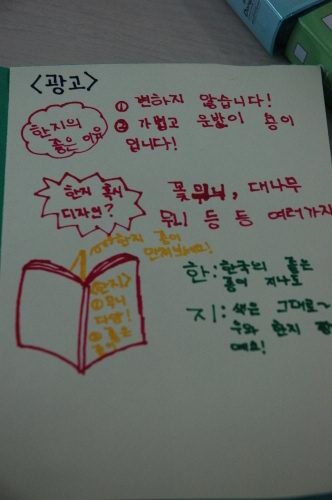 <광고>
한지의
좋은 이유
① 변하지 않습니다!
② 가볍고 운반이 용이
입니다!
한지 혹시
디자인?
꽃무늬, 대나무
무늬 등 등 여러가지
한지 종이
만져보세요!
<한지>
① 무늬
다양!
② 좋은
종이
한: 한국의 좋은
종이 지나도
지: 색은 그대로~
우와 한지 짱
이에요!